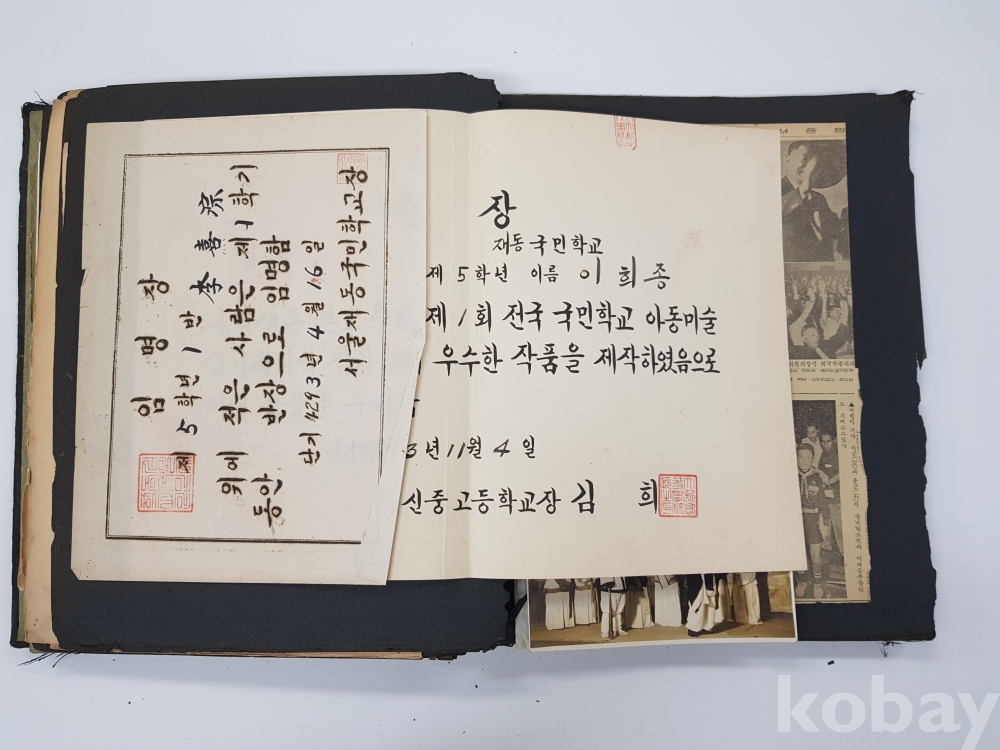 임명장
제 5 학년 1 반 李喜宗
위에 적은 사람은 제 1 학기
동안 반장으로 임명함
단기 4293 년 4 월 16 일
서울재동국민학교장
장
재동국민학교
제 5 학년 이름 이희종
제 1 회 전국 국민학교 아동미술
우수한 작품을 제작하였음으로
3 년 11 월 4 일
신중고등학교장 김 희
kobay